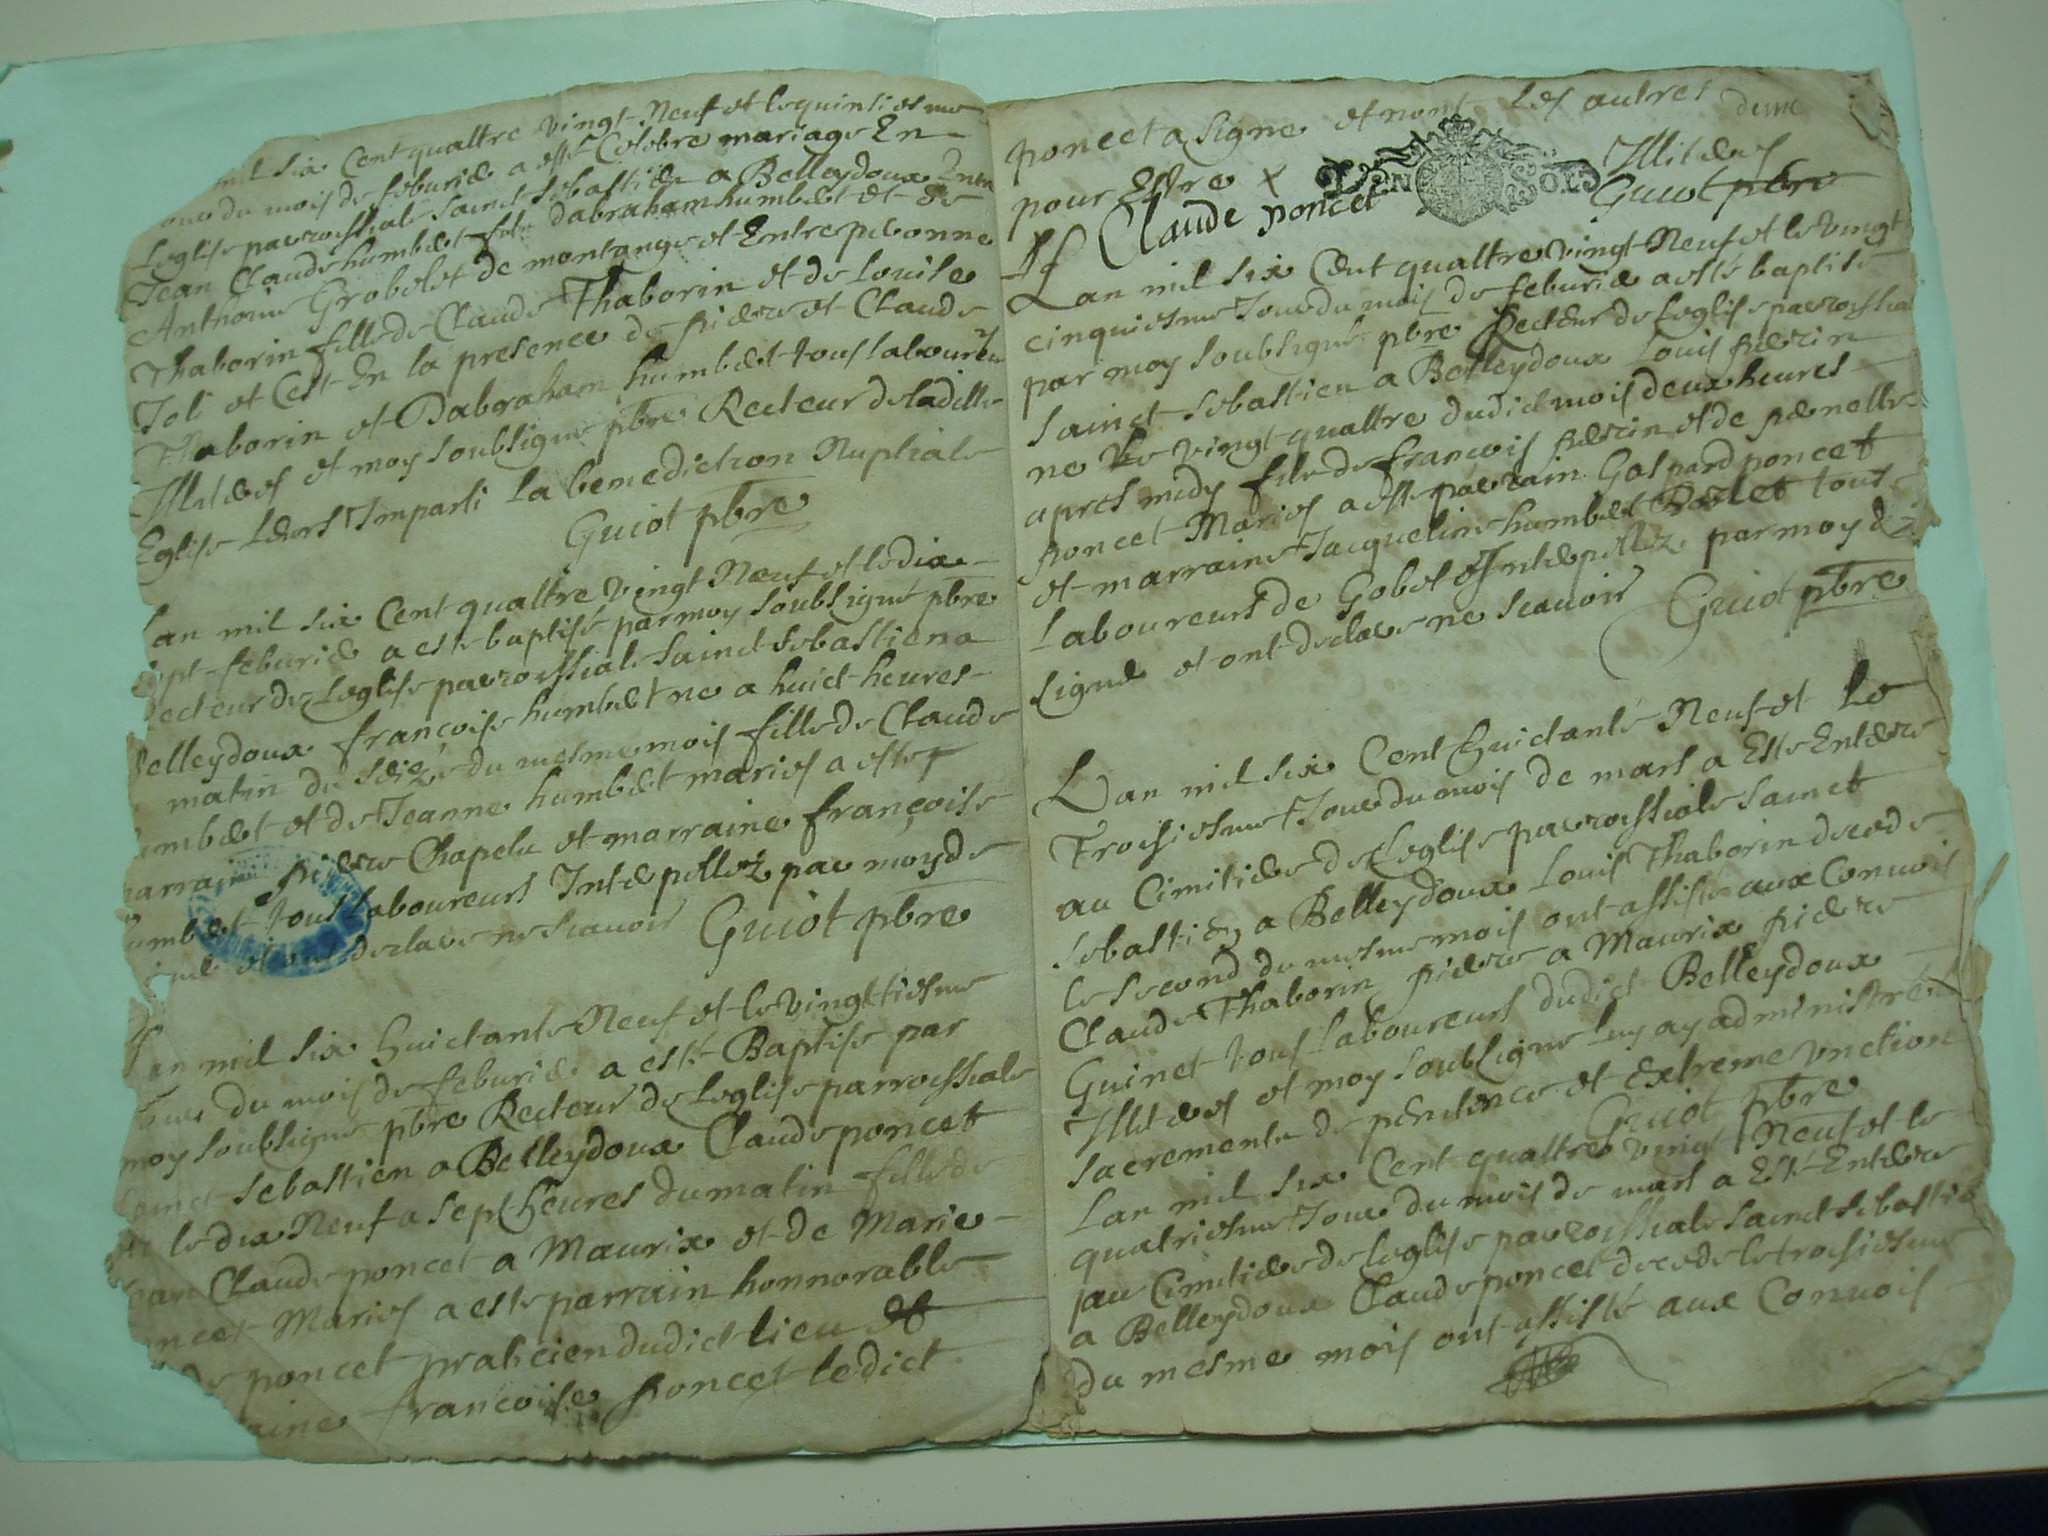 mil six Cent quattre vingt Neuf et le quinsiesme
du mois de feburier a este Celebre mariage En
Leglise parrochialle sainct sebastien a Belleydoux Entre
Jean Claude humbert fils dabraham humbert et de
Anthoine Grobelet de montange et Entre pivonne
Thaborin fille de Claude Thaborin et de Louise
Joli et Cest En la presence de pierre et Claude
Thaborin et Dabraham humbert tous laboureurs
Illiteres et moy soubsigne pbre Recteur de ladicte
Eglise Leurs Imparti la benediction Nuptiale
Guiot pbre
Lan mil six Cent quattre vingt Neuf et le dix
sept feburier a este baptise par moy soubsigné pbre
Recteur de Leglise parrochialle sainct sebastien a
Belleydoux françoise humbert ne a huict heures
matin du seize du mesme mois fille de Claude
humbert et de Jeanne humbert maries a este
parrain pierre Chapelu et marraine françoise
humbert tous laboureurs Interpellez par moy de
signer et ont declare ne scavoir Guiot pbre
Lan mil six huictante Neuf et le vingttiesme
Jour du mois de feburier a esté Baptise par
moy soubsigne pbre Recteur de Leglise parrochialle
sainct sebastien a Belleydoux Claude poncet
ne le dix Neuf a sept heures du matin fille de
Jean Claude poncet a Maurix et de Marie
poncet Maries a este parrain honnorable
Claude poncet praticien dudict lieu et
marraine francoise poncet ledict
poncet a signe et nont Les autres
pour Estre Illiteres
Claude poncet Guiot pbre
Lan mil six Cent quattre vingt Neuf et le vingt
cinquiesme Jour du mois de feburier a esté baptise
par moy soubsigné pbre Recteur de Leglise parrochialle
sainct sebastien a Belleydoux Louis perrin
ne le vingt quattre dudict mois deux heures
apres midy fils de françois perrin et de pernelle
poncet Maries a este parrain Gaspard poncet
et marraine Jacqueline humbert tous
Laboureurs de Gobet Interpellez par moy de
signer et ont declare ne scavoir Guiot pbre
Lan mil six Cent huictante Neuf et Le
Troisiesme Jour du mois de mars a Este Enterre
au Cimitiere de Leglise parrochialle sainct
sebastien a Belleydoux Louis Thaborin decede
le second du mesme mois ont assiste aux Convois
Claude Thaborin pierre a Maurix pierre
Guinet tous laboureurs dudict Belleydoux
Illiteres et moy soubsigne luy ay administré
sacrements de penitence et Extreme unction
Guiot pbre
Lan mil six Cent quattre vingt Neuf et le
quatriesme Jour du mois de mars a Esté Enterre
au Cimitiere de Leglise parrochialle sainct sebastien
a Belleydoux Claude poncet decede le troisiesme
du mesme mois ont assisté aux Convois